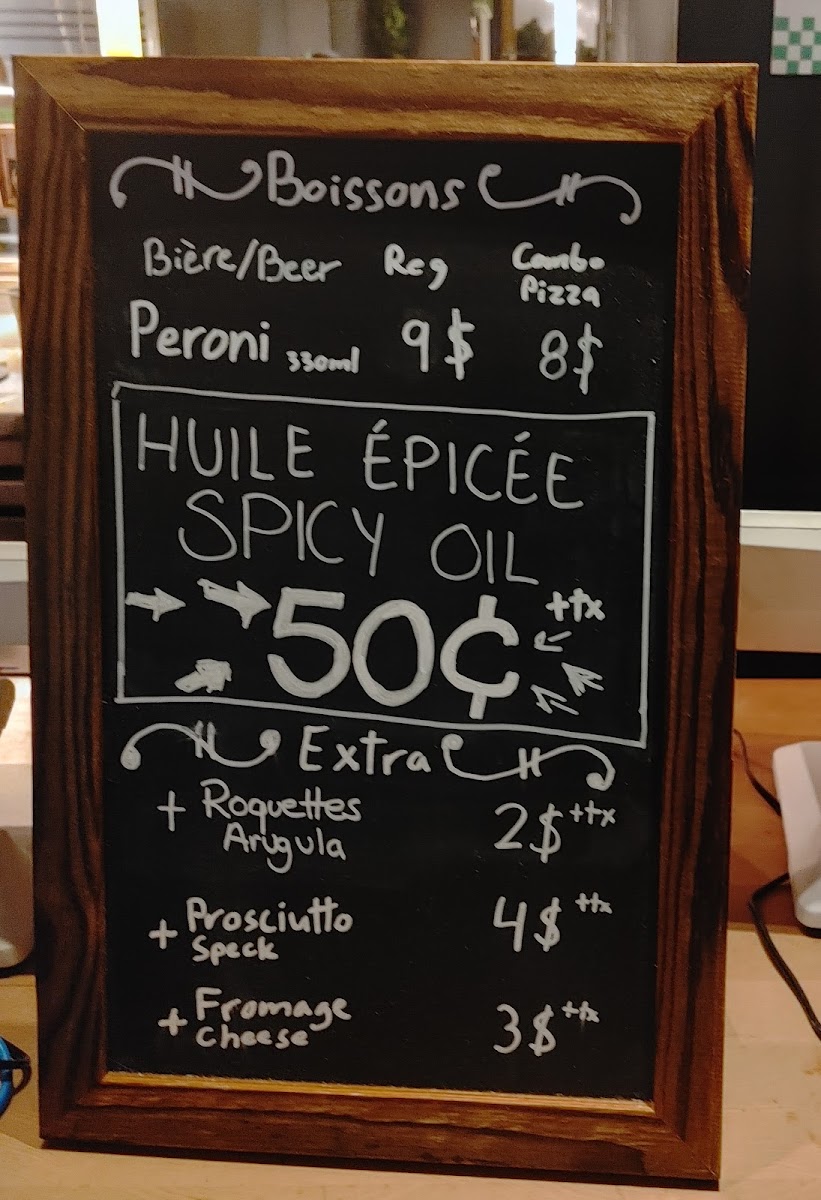 Boissons
Bière/Beer Reg Combo Pizza
Peroni 330ml 9$ 8$
HUILE ÉPICÉE
SPICY OIL
50¢ +tx
Extra
+ Roquettes 2$ +tx
Arugula
+ Prosciutto 4$ +tx
Speck
+ Fromage 3$ +tx
Cheese